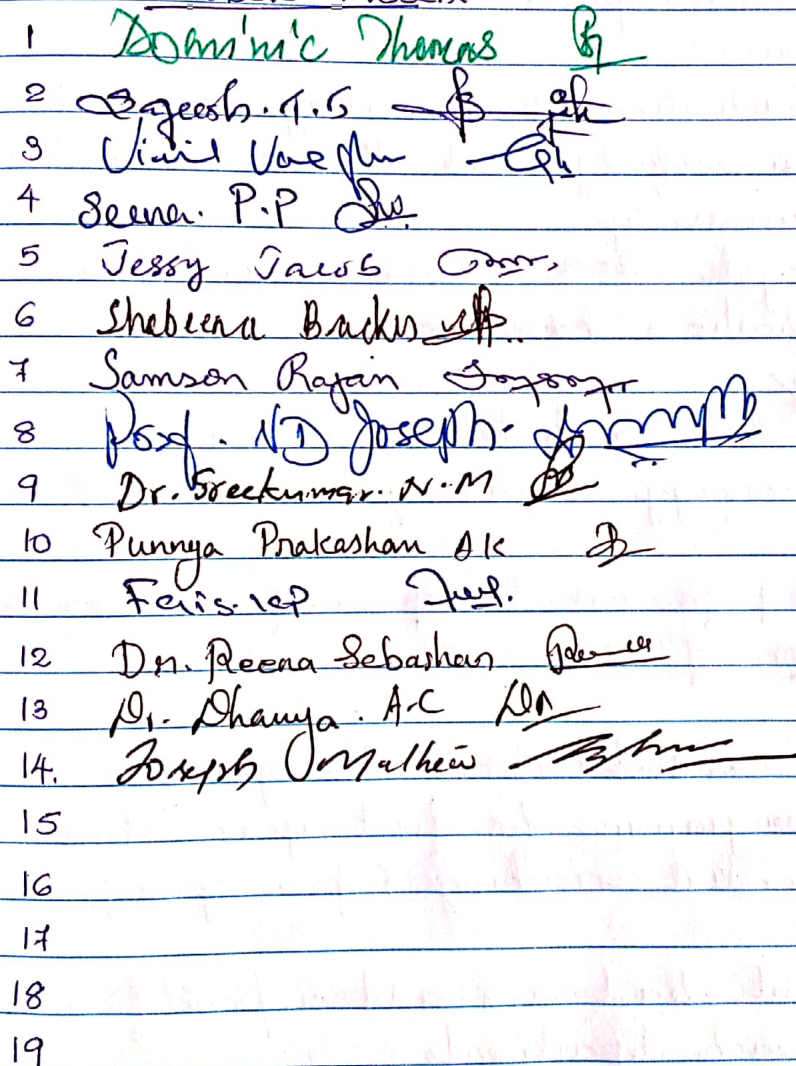 1 Dominic Thomas
2 Sajeesh. T.S
3 Vinil Varghu
4 Seena. P.P
5 Jessy Jacob
6 Shebeena Backer
7 Samson Rajan
8 Prof. ND Joseph.
9 Dr. Sreekumar. N.M
10 Punnya Prakashan AK
11
12 Dr. Reena Sebashan
13 Dr. Dhanya. A.C
14. Joseph Mathew
15
16
17
18
19